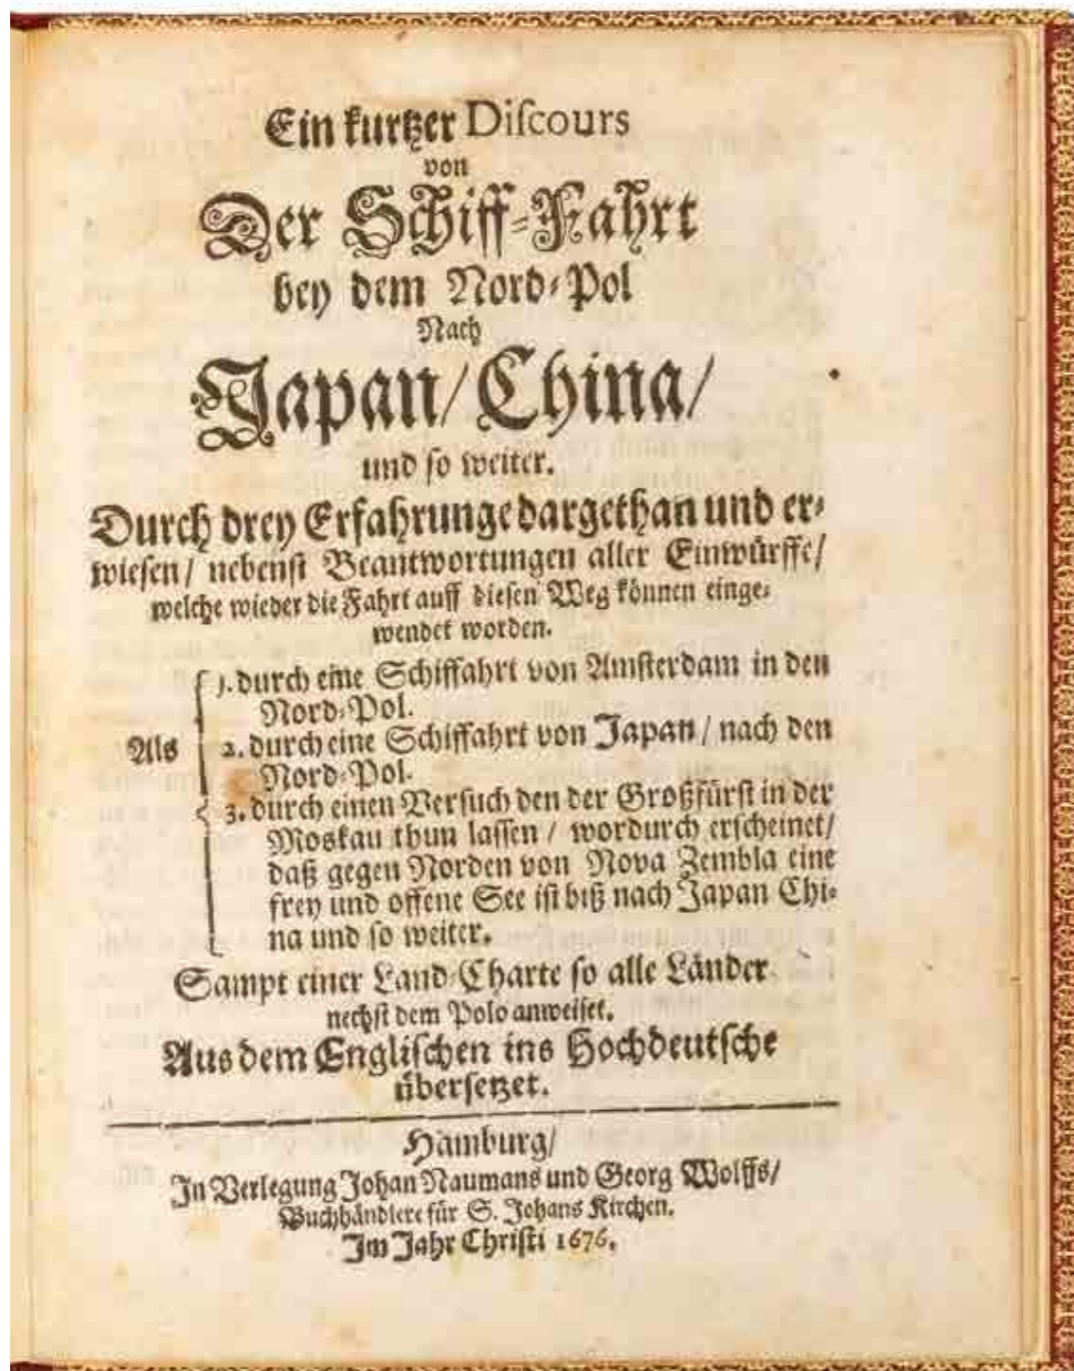 Ein kurtzer Diſcours
von
Der Schiff-Fahrt
bey dem Nord-Pol
Nach
Japan/ China/
und ſo weiter.
Durch drey Erfahrunge dargethan und er-
wieſen/ nebenſt Beantwortungen aller Einwürffe/
welche wieder die Fahrt auff dieſen Weg können einge-
wendet worden.
Als
1. durch eine Schiffahrt von Amſterdam in den
Nord-Pol.
2. durch eine Schiffahrt von Japan/ nach den
Nord-Pol.
3. durch einen Verſuch den der Großfürſt in der
Moskau thun laſſen/ wordurch erſcheinet/
daß gegen Norden von Nova Zembla eine
frey und offene See iſt biß nach Japan Chi-
na und ſo weiter.
Sampt einer Land-Charte ſo alle Länder
nechſt dem Polo anweiſet.
Aus dem Engliſchen ins Hochdeutſche
überſetzet.
Hamburg/
In Verlegung Johan Naumans und Georg Wolffs/
Buchhändlere für S. Johans Kirchen.
Im Jahr Chriſti 1676.